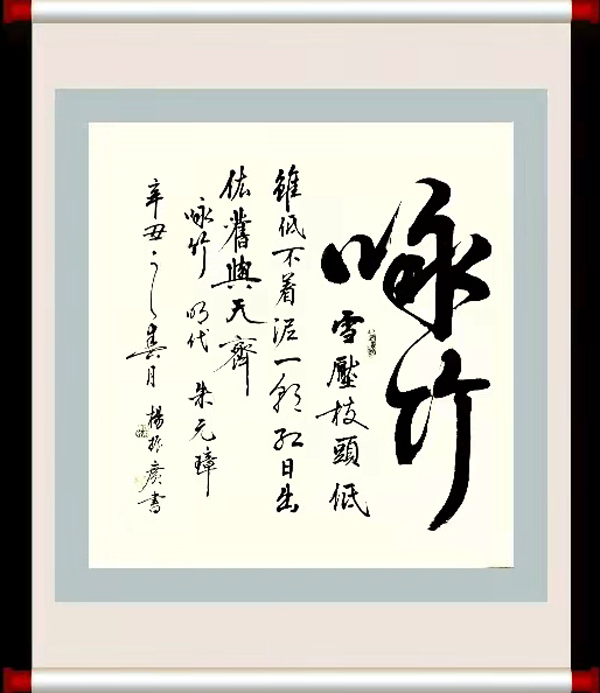 咏竹
雪壓枝頭低
雖低不着泥一朝紅日出
依舊與天齊
咏竹 明代 朱元璋
辛丑之春月 楊振廣書